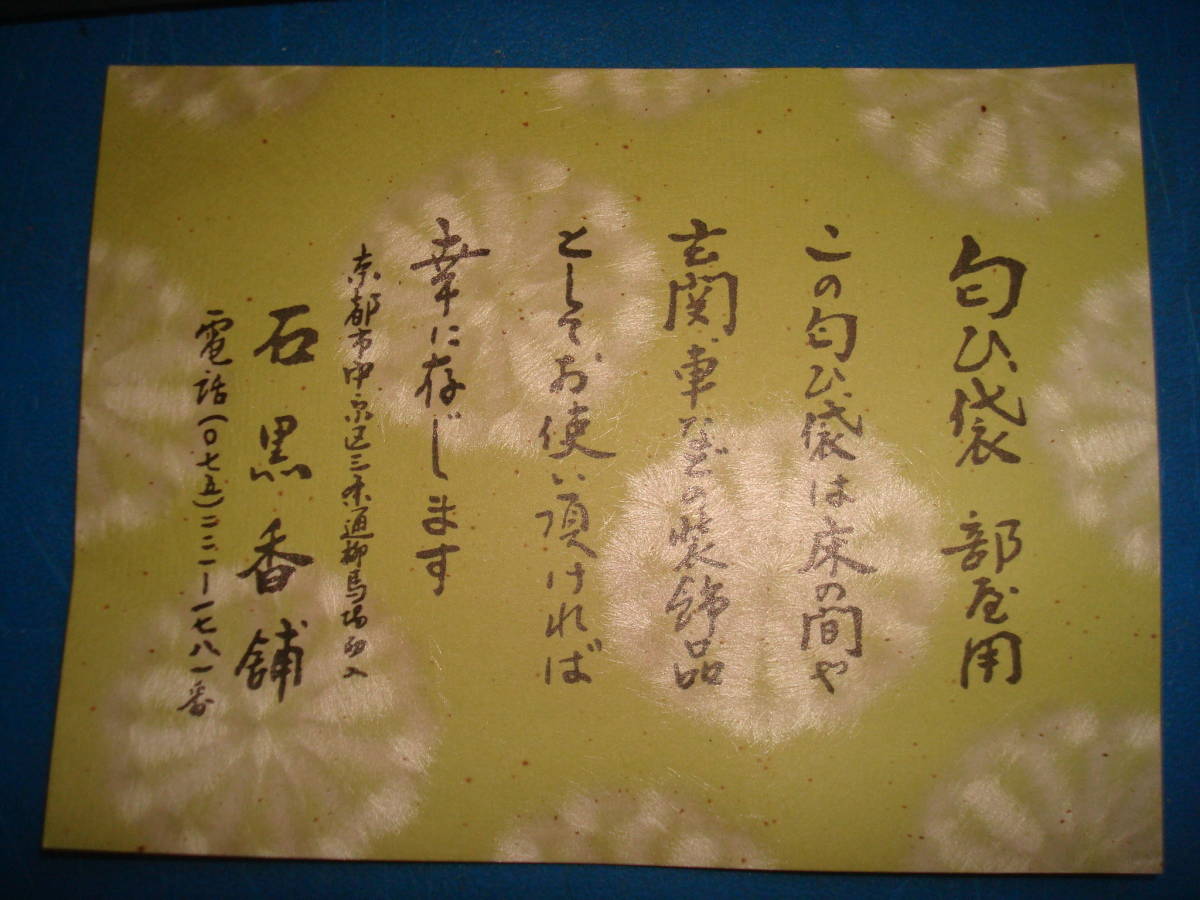 匂ひ袋 部屋用
この匂ひ袋は床の間や
玄関、車などの装飾品
としてお使い頂ければ
幸に存じます
京都市中京区三条通柳馬場西入
石黒香舗
電話(〇七五)二二一一一七八一番